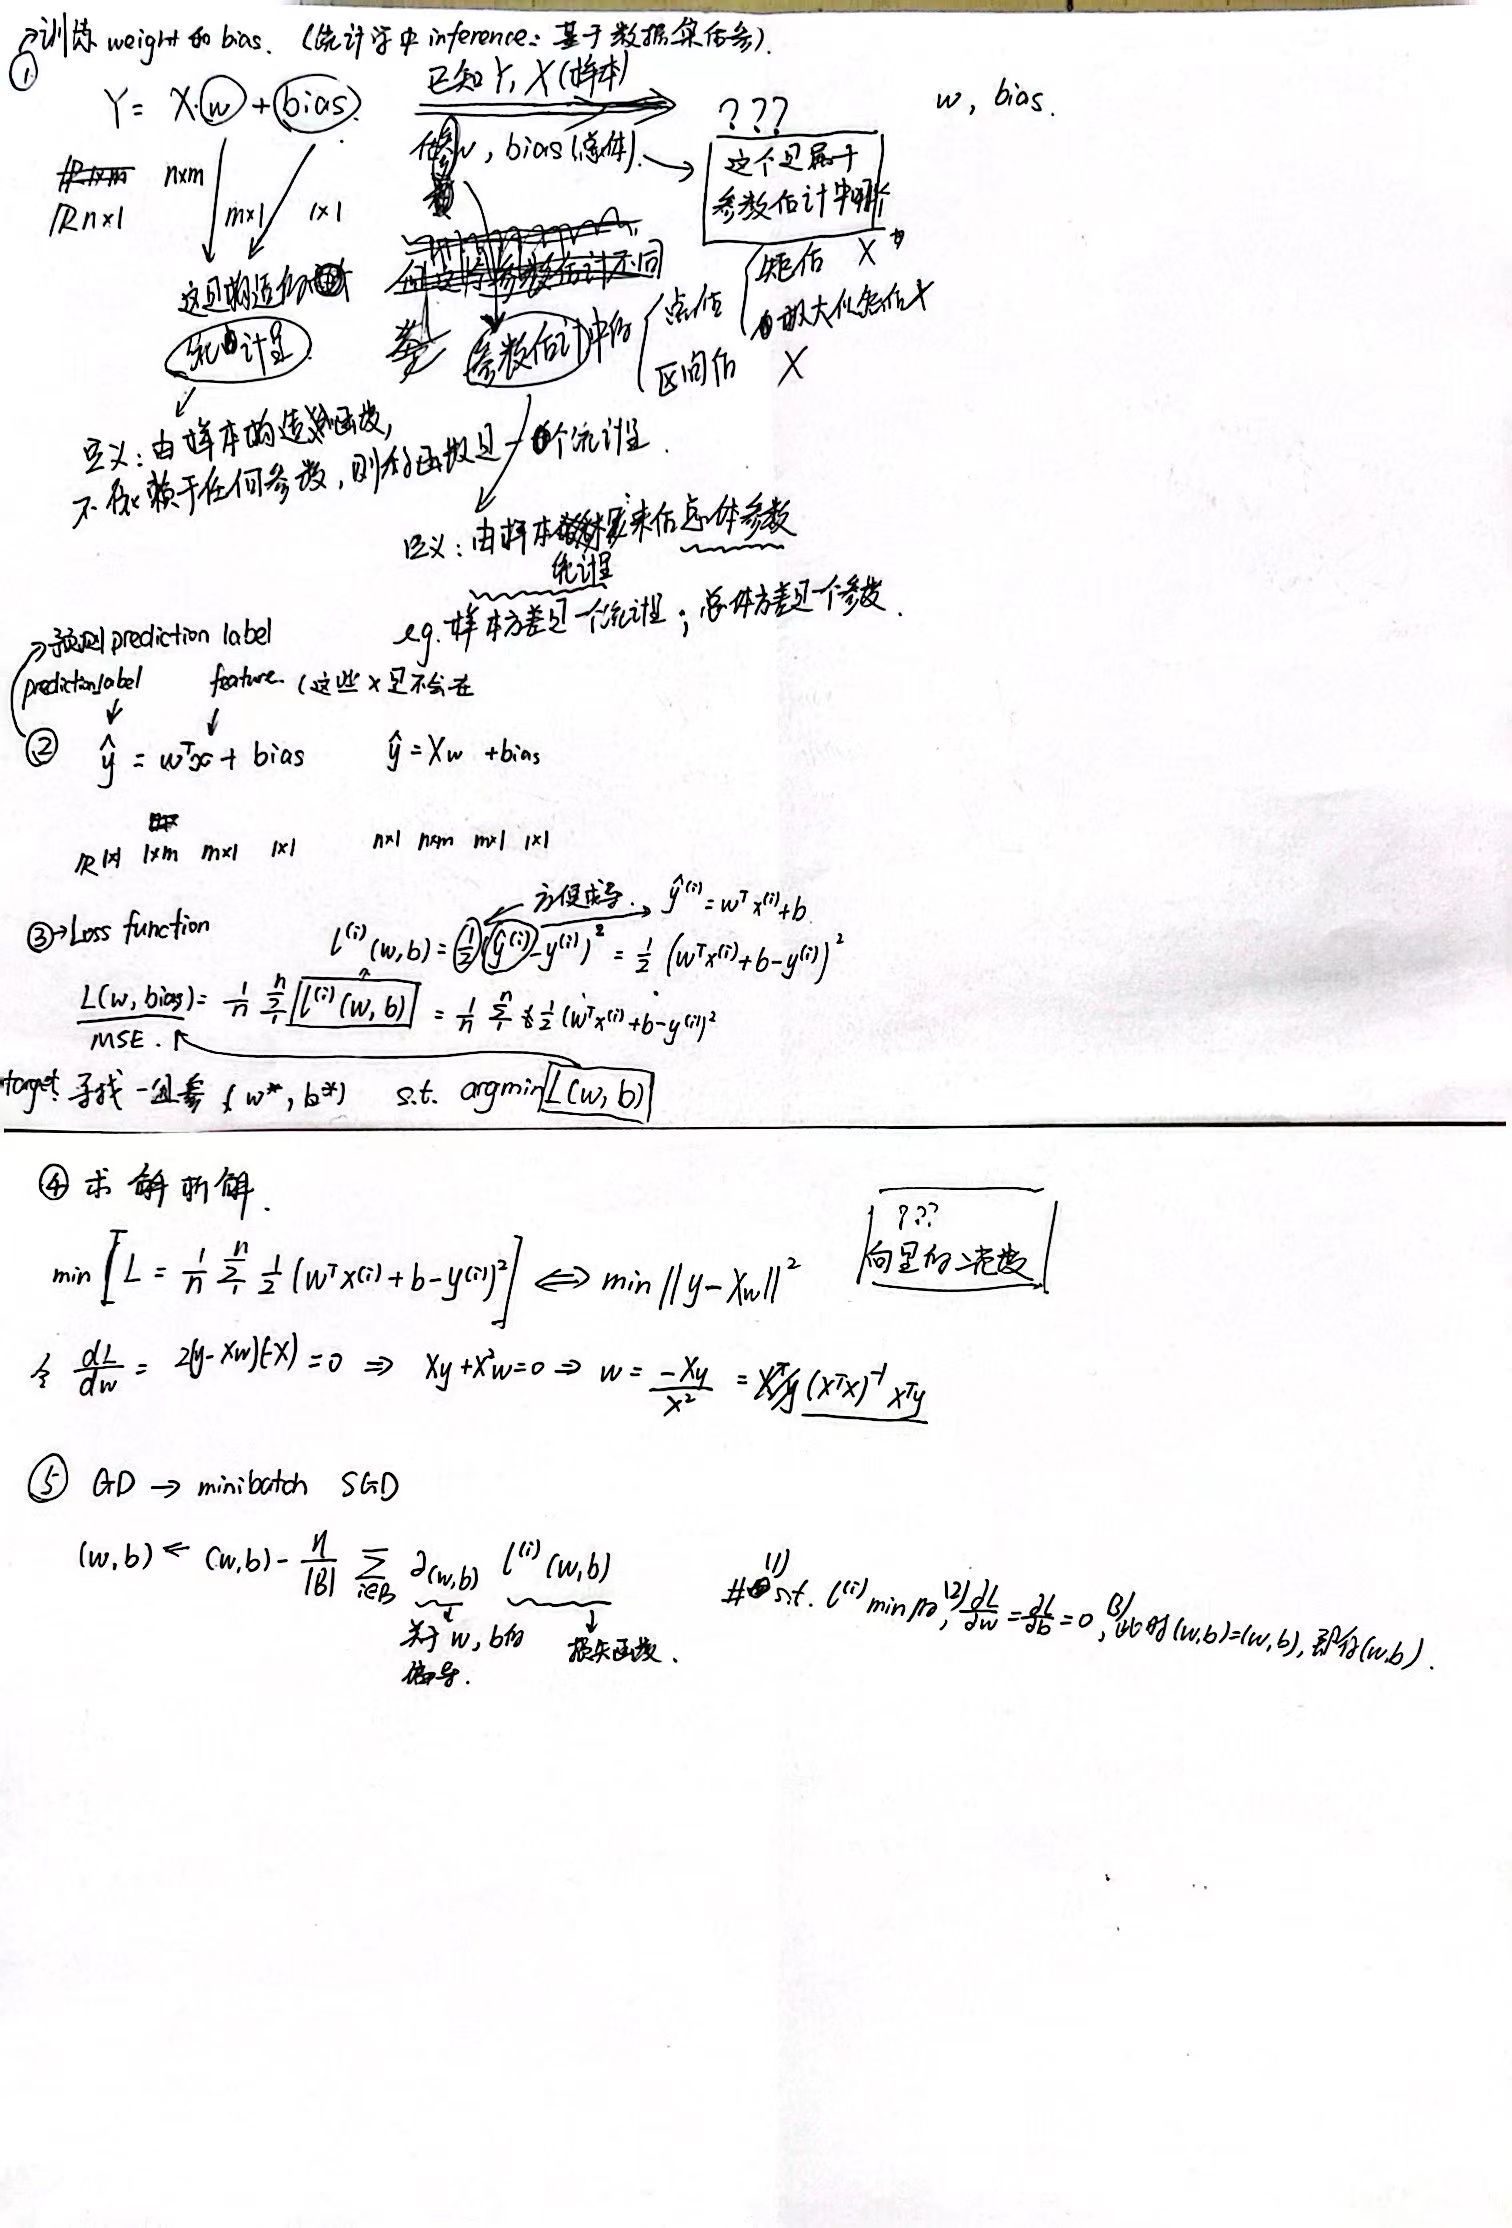 训练 weight 和 bias. (统计学中 inference: 基于数据集估参).
① Y = X·w + bias. 已知 Y, X (样本) ??? w, bias.
估参w, bias (总体). 这个是属于
参数估计中哪个
n×m
ℝ n×1 m×1 1×1
这是构造的 矩估 X
统计量 参数估计中的 点估 极大似然估 X
区间估 X
定义: 由样本构造函数,
不依赖于任何参数, 则称函数是一个统计量.
定义: 由样本 来估总体参数
统计量
eg. 样本方差是一个统计量; 总体方差是一个参数.
预测 prediction label
prediction label feature. (这些 x 是不会在
② ŷ = wᵀx + bias ŷ = Xw + bias
ℝ 1×1 1×m m×1 1×1 n×1 n×m m×1 1×1
方便求导. ŷ⁽ⁱ⁾ = wᵀx⁽ⁱ⁾ + b
③ → Loss function l⁽ⁱ⁾(w,b) = ½ (ŷ⁽ⁱ⁾ - y⁽ⁱ⁾)² = ½ (wᵀx⁽ⁱ⁾ + b - y⁽ⁱ⁾)²
L(w, bias) = 1/n Σ₁ⁿ l⁽ⁱ⁾(w, b) = 1/n Σ₁ⁿ ½ (wᵀx⁽ⁱ⁾ + b - y⁽ⁱ⁾)²
MSE.
target: 寻找一组参 (w*, b*) s.t. argmin L(w, b)
④ 求解析解.
???
向量的二范数
min [L = 1/n Σ₁ⁿ ½ (wᵀx⁽ⁱ⁾ + b - y⁽ⁱ⁾)²] ⇔ min ||y - Xw||²
令 dL/dw = 2(y - Xw)(-X) = 0 ⇒ Xy + X²w = 0 ⇒ w = -Xy/X² = (XᵀX)⁻¹ Xᵀy
⑤ GD → minibatch SGD
(w,b) ← (w,b) - η/|B| Σ i∈B ∂(w,b) l⁽ⁱ⁾(w,b)
关于 w, b的 损失函数.
偏导.
# (1) s.t. l⁽ⁱ⁾ min 时, (2) ∂L/∂w = ∂L/∂b = 0, (3) 此时 (w,b)=(w,b), 即得(w,b).